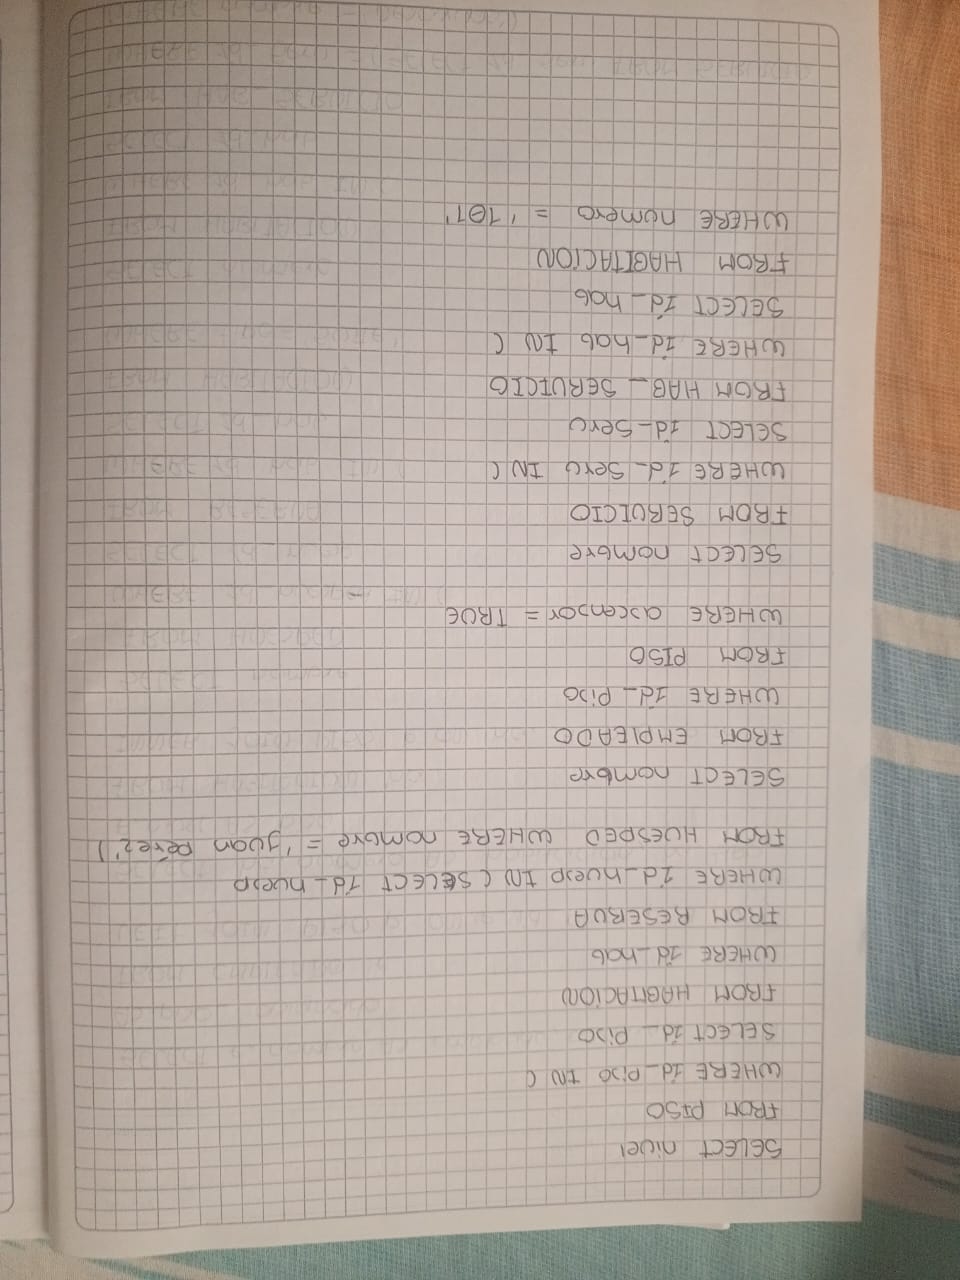 SELECT nivel
FROM PISO
WHERE id_piso IN (
SELECT id_piso
FROM HABITACION
WHERE id_hab
FROM RESERVA
WHERE id_huesp IN (SELECT id_huesp
FROM HUESPED WHERE nombre = 'juan pérez')
SELECT nombre
FROM EMPLEADO
WHERE id_piso
FROM PISO
WHERE ascensor = TRUE
SELECT nombre
FROM SERVICIO
WHERE id_serv IN (
SELECT id_serv
FROM HAB_SERVICIO
WHERE id_hab IN (
SELECT id_hab
FROM HABITACION
WHERE numero = '101'